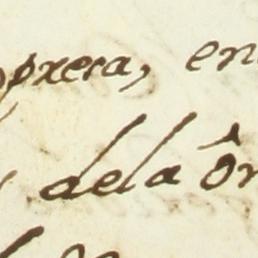 pxera, en
dela ôr